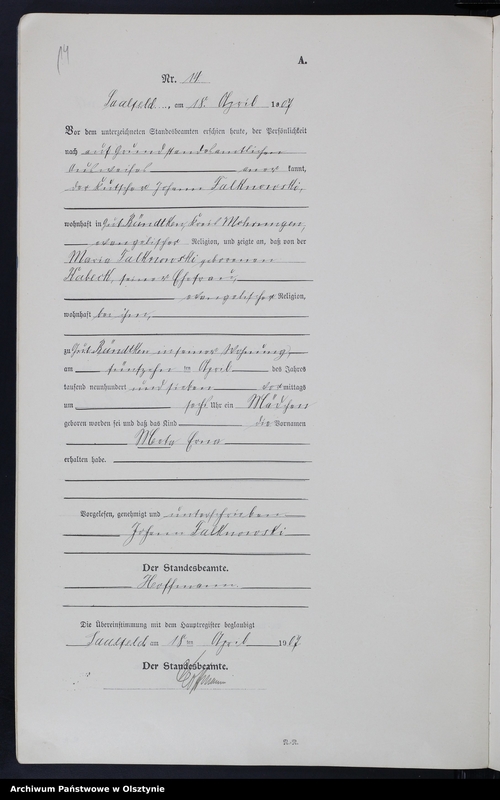 14
A.
Nr. 14.
Saalfeld, am 18. April 1907
Vor dem unterzeichneten Standesbeamten erschien heute, der Persönlichkeit
nach auf Grund standesamtlichen
Ausweises anerkannt,
der Kutscher Johann Falknowski,
wohnhaft in Gut Kündtken, Kreis Mohrungen,
evangelischer Religion, und zeigte an, daß von der
Maria Falknowski geborenen
Habeck, seiner Ehefrau,
evangelischer Religion,
wohnhaft bei ihm,
zu Gut Kündtken in seiner Wohnung,
am fünfzehn ten April des Jahres
tausend neunhundert und sieben vormittags
um sechs Uhr ein Mädchen
geboren worden sei und daß das Kind die Vornamen
Erna
erhalten habe.
Vorgelesen, genehmigt und unterschrieben
Johann Falknowski
Der Standesbeamte.
Hoffmann
Die Übereinstimmung mit dem Hauptregister beglaubigt
Saalfeld am 18 ten April 1907
Der Standesbeamte.
Hoffmann
Archiwum Państwowe w Olsztynie